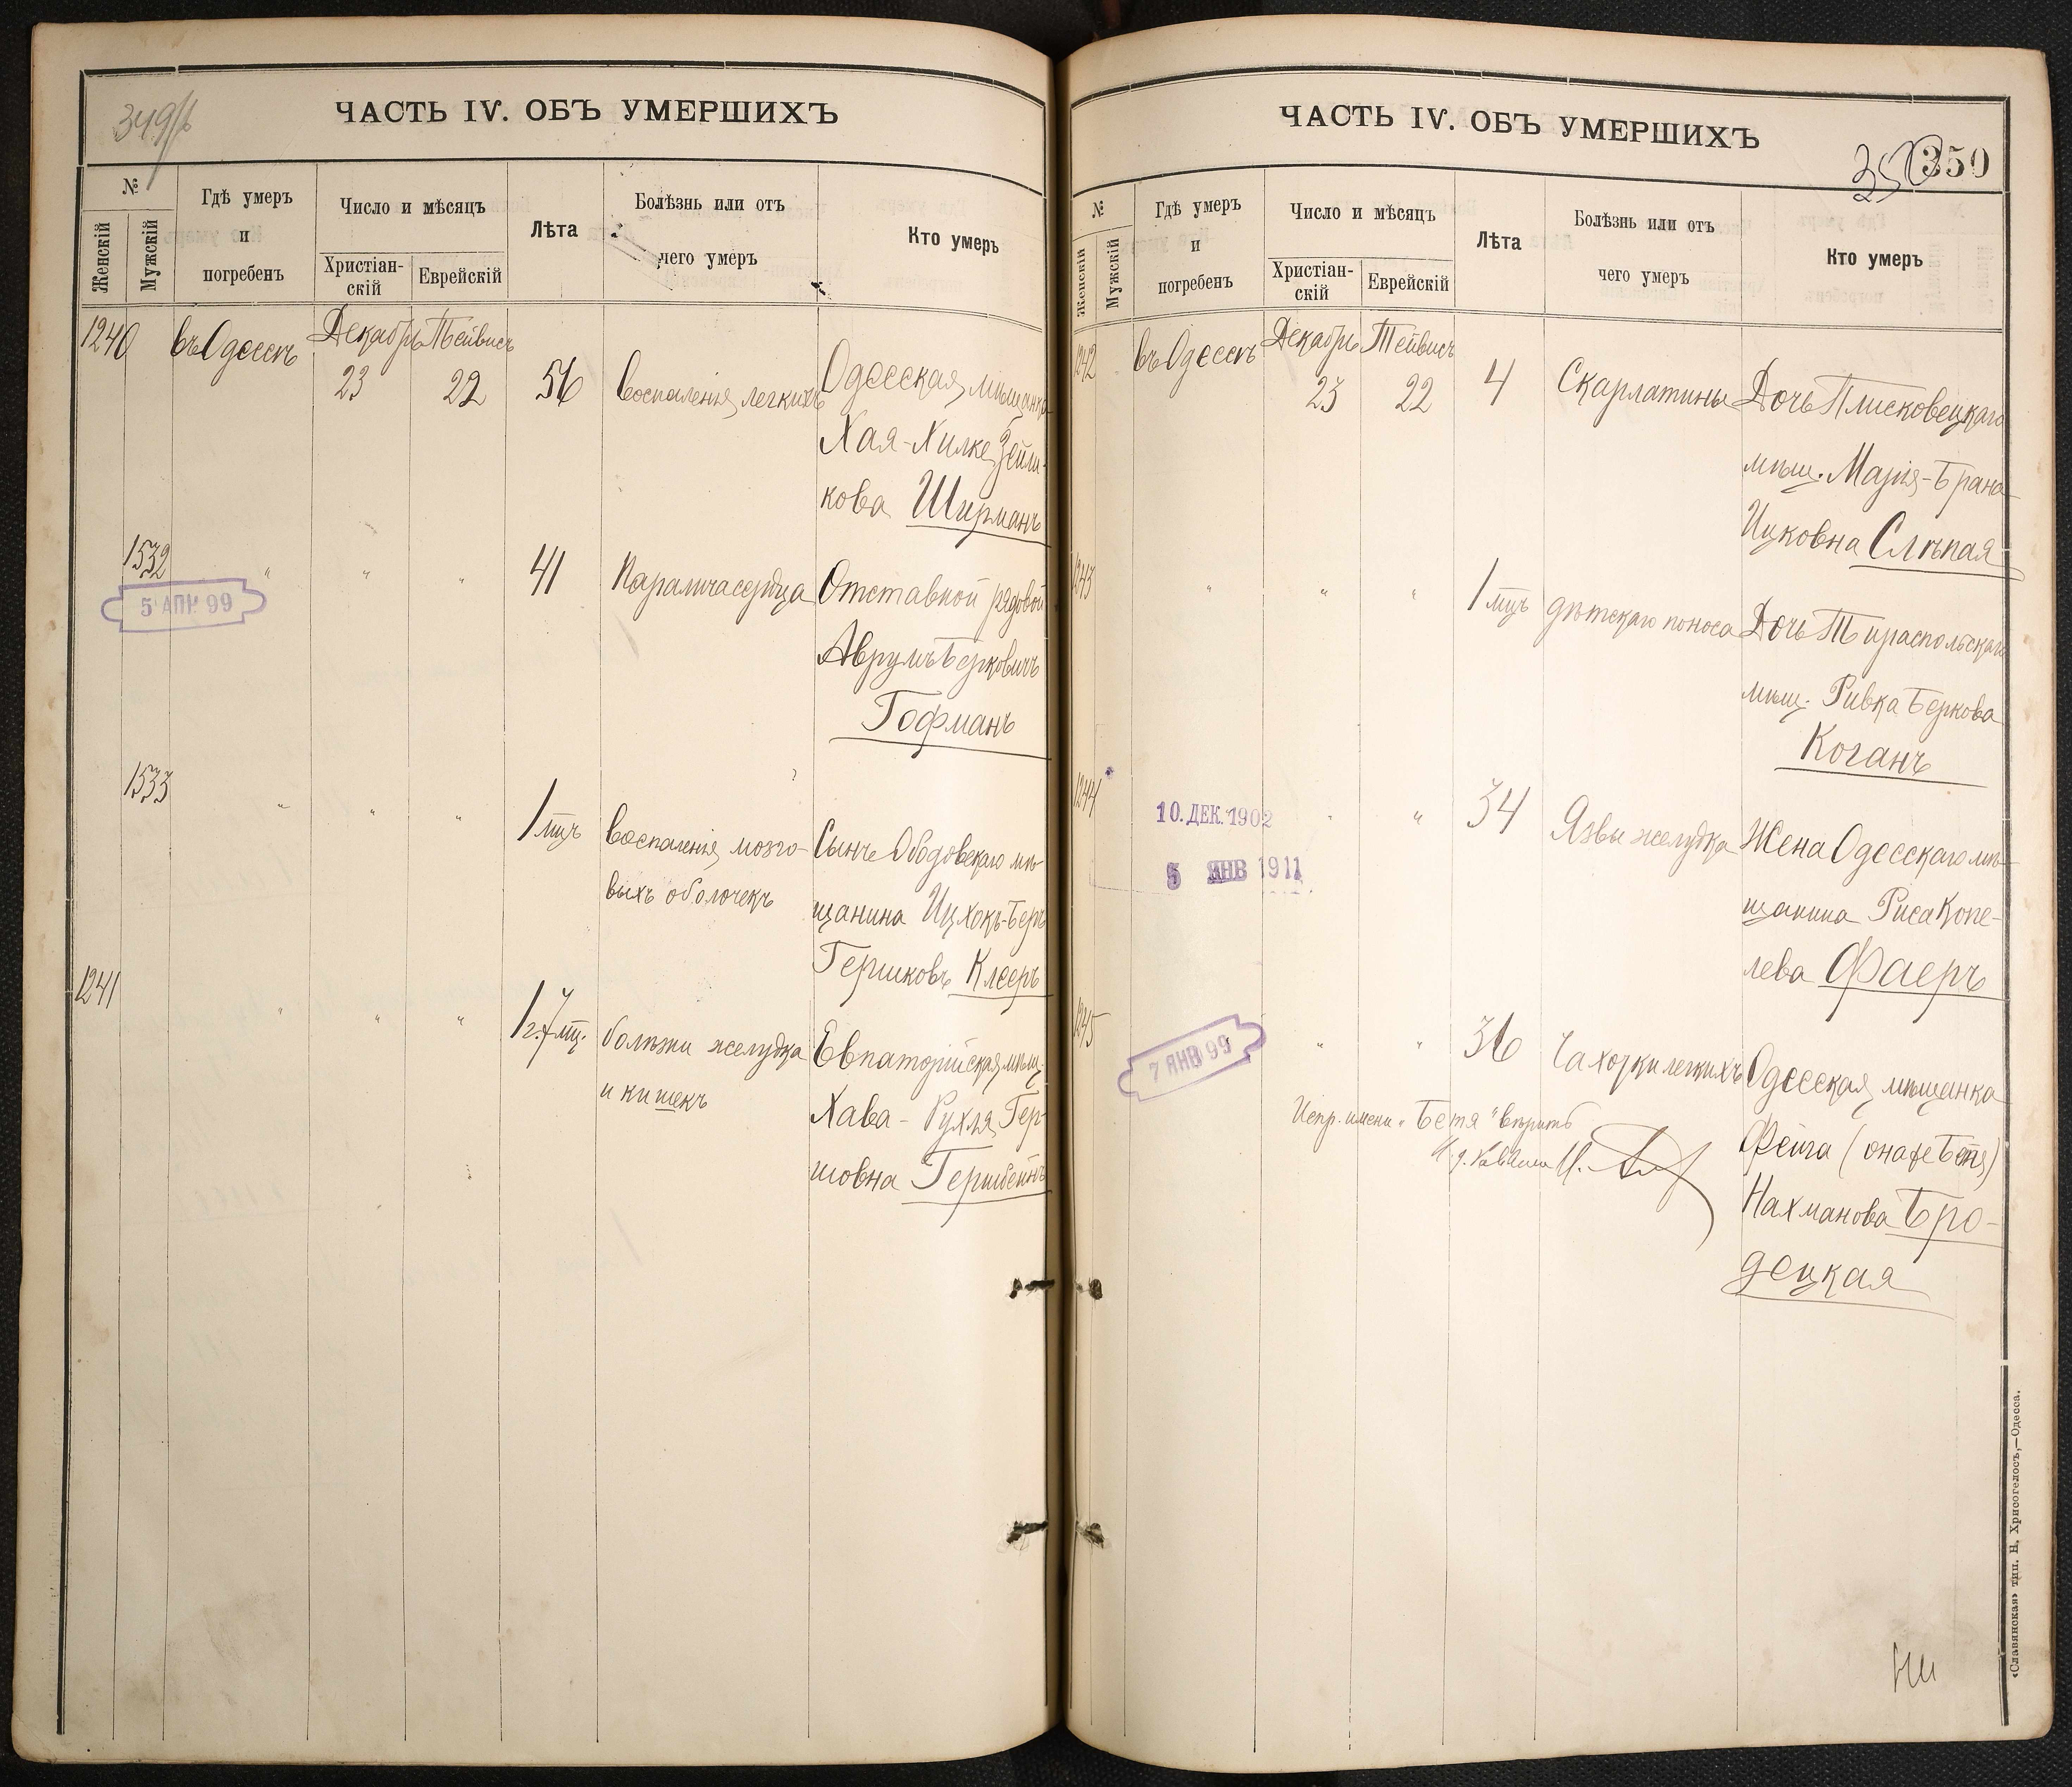 349/б
ЧАСТЬ IV. ОБЪ УМЕРШИХЪ
№
Женскій
Мужскій
Гдѣ умеръ
и
погребенъ
Число и мѣсяцъ
Христіан-
скій
Еврейскій
Лѣта
Болѣзнь или отъ
чего умеръ
Кто умеръ
1240 въ Одессѣ Декабрь Тейвисъ
23 22 56 Воспаленія легкихъ Одесская мѣщанка
Хая-Хилке Зейли-
кова Ширманъ
1532 " " " 41 Паралича сердца Отставной рядовой
5 АПР 99
Аврумъ Берковичъ
Гофманъ
1533 " " " 1 мцъ Воспаленія мозго- Сынъ Ободовскаго мѣ-
выхъ оболочекъ щанина Ицхокъ-Беръ
Гершковъ Клееръ
1241 " " " 1 г. 7 мц. болѣзни желудка Евпаторійская мѣщ.
и кишекъ Хава-Рухля Гер-
шовна Гершбейнъ
ЧАСТЬ IV. ОБЪ УМЕРШИХЪ
350 350
№
Женскій
Мужскій
Гдѣ умеръ
и
погребенъ
Число и мѣсяцъ
Христіан-
скій
Еврейскій
Лѣта
Болѣзнь или отъ
чего умеръ
Кто умеръ
1242 въ Одессѣ Декабрь Тейвисъ
23 22 4 Скарлатины Дочь Плисковецкаго
мѣщ. Марія-Брана
Ицковна Слѣпая
1243 " " " 1 мцъ дѣтскаго поноса Дочь Тираспольскаго
мѣщ. Ривка Беркова
Коганъ
1244 10. ДЕК. 1902 " " 34 Язвы желудка Жена Одесскаго мѣ-
5 ЯНВ 1911
щанина Риса Копе-
лева Фаеръ
1245 " " 36 Чахотки легкихъ Одесская мѣщанка
7 ЯНВ 99
Испр. имени "Бетя" вѣрить
Фейга (она же Бетя)
Нахманова Бро-
децкая
«Славянская» тип. Н. Хрисогелосъ,—Одесса.